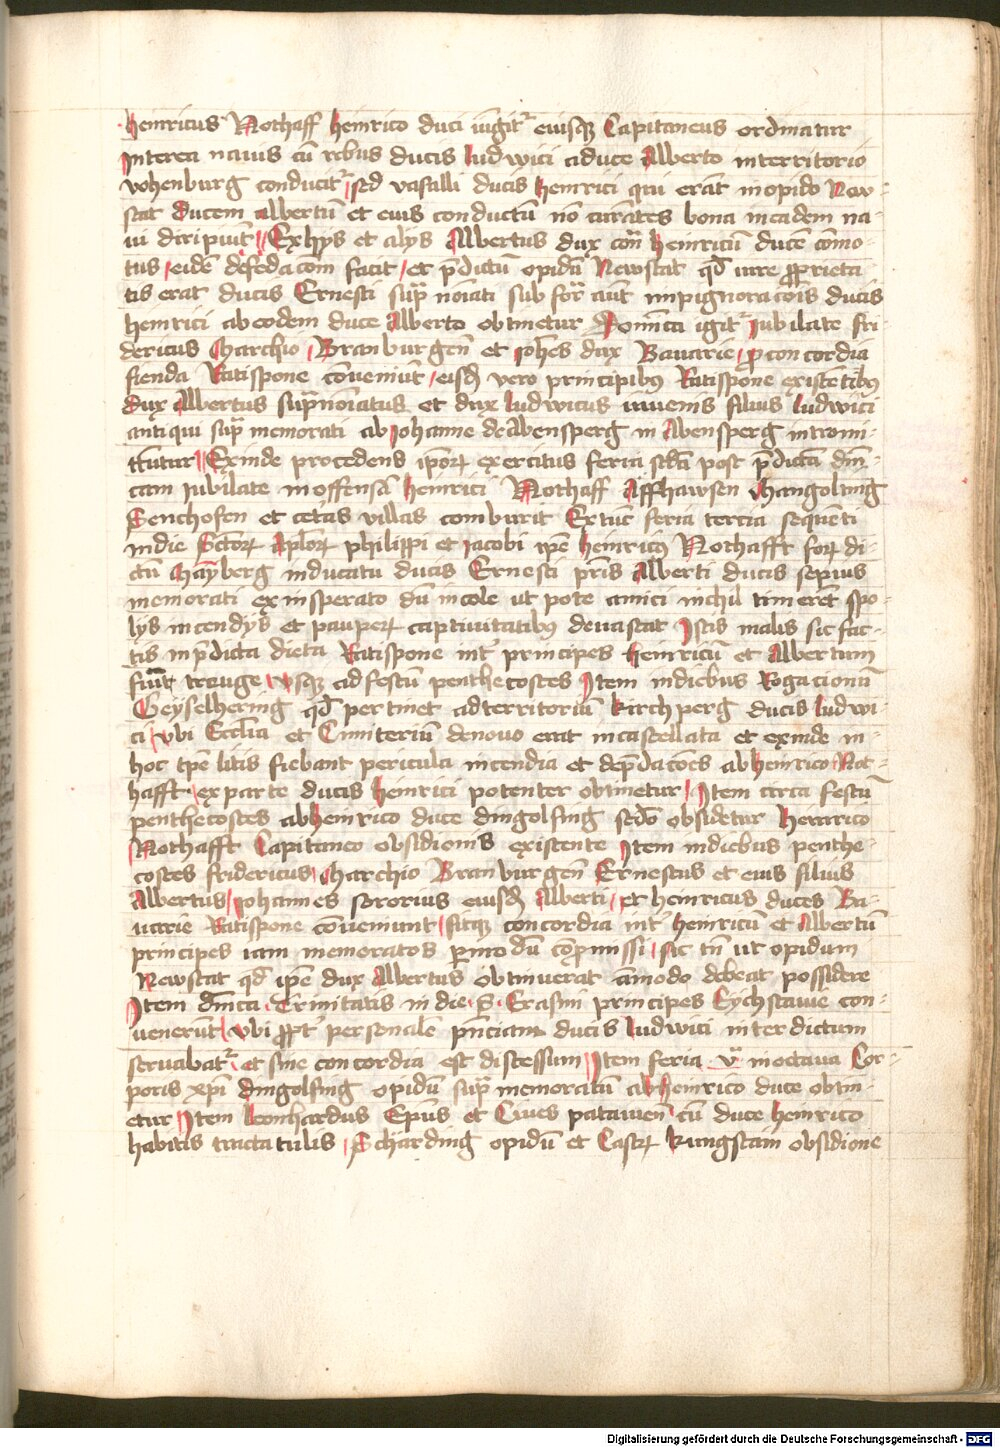 Heinricus Nothaff heinrico duci iungit᷑ eiusqꝫ Capitaneus ordinatur
Interea nauis cū rebus ducis ludwici aduce Alberto interritorio
vohenburg conducit᷑ sed vasalli ducis heinrici qui erāt inopido New-
stat Ducem albertū et eius conductū nō curātes bona ineadem na-
ui diripiūt Exhys et alys Albertus dux cont̃ heinricū ducē cōmo-
tus eidē defeda com̄ facit et p̄dictū opidū Newstat qd̄ iure ꝓprieta
tis erat ducis Ernesti sup̃ noīati sub for̃ aūt impignoracōis ducis
heinrici abeodem duce Alberto obtinetur Domīca igit᷑ Iubilate fri-
dericus Marchio Branburgen̄ et Ioh̄es dux Bauarie ꝓ concordia
fienda Ratispone cōueniūt eisd̄ vero principibꝰ Ratispone existētibꝰ
Dux Albertus sup̃noīatus et dux ludwicus iuuenis filius ludwici
antiqui sup̃ memorati abiohanne deAbensperg in Abensperg intromi-
ttūtur Exinde procedens ip̄orꝝ exercitus feria scd̄a post p̄dictā dn̄i-
cam Iubilate inoffensā heinrici Nothaff Affhawsen Mangolting
Senchofen et cetas villas comburit Ex tūc feria tercia sequēti
indie Sc̄torꝝ Aplōrꝝ philippi et Iacobi ip̄e heinricꝰ Nothafft forꝝ di-
ctū Haÿberg inducatu ducis Ernesti pr̄is Alberti ducis sepius
memorati ex insperato dū incole ut pote amici nichil timerēt spo-
lys incendys et pauperꝝ captiuitatibꝰ deuastat Istis malis sic fac-
tis inp̄dicta dieta Ratispone int᷑ principes heinricū et Albertum
fiūt treuge vsqꝫ adfestū penthecostes Item indiebus Rogacionū
Geyselhering qd̄ pertinet adterritoriū kirchperg ducis ludwi-
ci vbi Ecclīa et Cimiteriū denouo erat incastellata et exinde in-
hoc tp̄e litis fiebant pericula incendia et dep̄dacōes abheinrico Not-
hafft exparte ducis heinrici potenter obtinetur Item circa festū
penthecostes abheinrico duce dingolfing scd̄o obsidetur heinrico
Nothafft Capitaneo obsidionis existente Item indiebus penthe-
costes fridericus Marchio Branburgen̄ Ernestus et eius filius
Albertus Iohannes sororius eiusd̄ Alberti et heinricus duces Ba-
uarie Ratispone cōueniunt fitqꝫ concordia int᷑ heinricū et Albertū
principes iam memoratos ꝑmodū cōp̄missi sic tn̄ ut opidum
Newstat qd̄ ip̄e dux Albertus obtinuerat āmodo debeat possidere
Item dn̄ica Trinitatis indie S. Erasmi principes Eychstauie con-
uenerūt vbi ꝓpt᷑ personalē pn̄ciam ducis ludwici interdictum
seruabat᷑ et sine concordia est discessum Item feria vᵃ inoctaua Cor-
poris xp̄i dingolfing opidū sup̃ memoratū abheinrico duce obtin-
etur Item leonhardus Ep̄us et Ciues patauien̄ cū duce heinrico
habitis tractatulis Scharding opidū et Castrꝝ kungstain obsidione
Digitalisierung gefördert durch die Deutsche Forschungsgemeinschaft - DFG